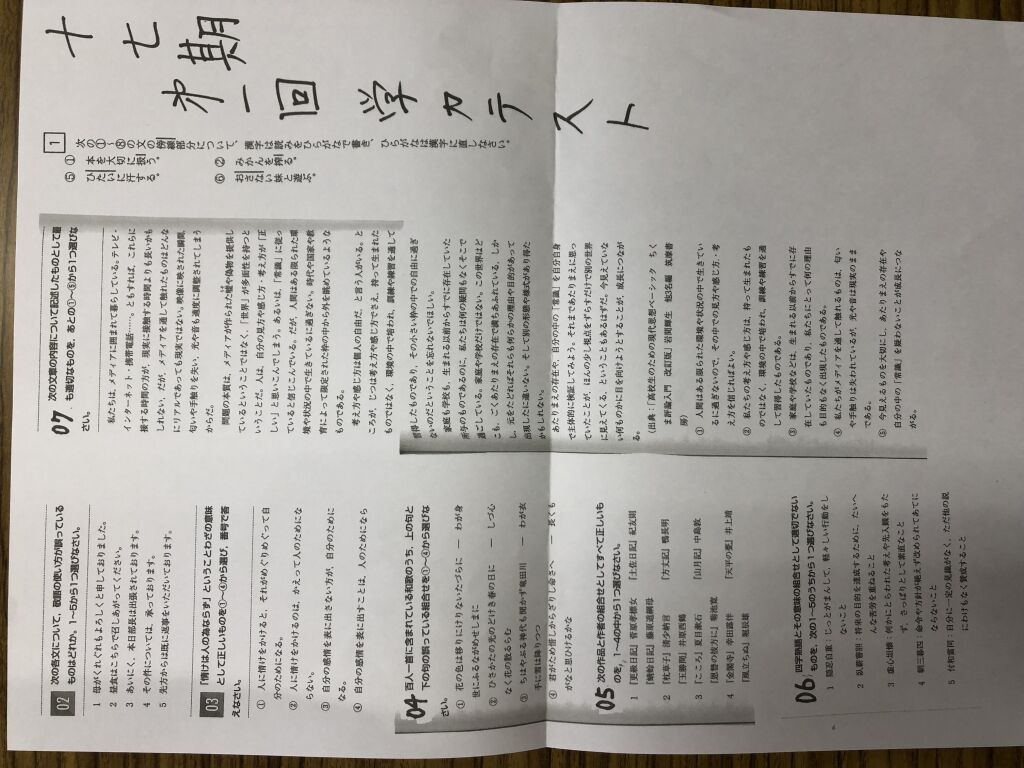 十七期
第一回学力テスト
1 次の①~⑧の文の傍線部分について、漢字は読みをひらがなで書き、ひらがなは漢字に直しなさい。
① 本を大切に扱う。
② みかんを搾る。
⑤ ひたいに汗する。
⑥ おさない妹と遊ぶ。
02 次の各文について、敬語の使い方が誤っている
ものはどれか、1~5から1つ選びなさい。
1 母がくれぐれもよろしくと申しておりました。
2 昼食はこちらで召しあがってください。
3 あいにく、本日部長は出張されております。
4 その件については、承っております。
5 先方からは既に返事をいただいております。
03 「情けは人の為ならず」ということわざの意味
として正しいものを①~④から選び、番号で答
えなさい。
① 人に情けをかけると、それがめぐりめぐって自
分のためになる。
② 人に情けをかけるのは、かえって人のためにな
らない。
③ 自分の感情を表に出さない方が、自分のために
なる。
④ 自分の感情を表に出すことは、人のためになら
04 百人一首に含まれている和歌のうち、上の句と
下の句の誤っている組合せを①~④から選びな
さい。
① 花の色は移りにけりないたづらに ― わが身
世にふるながめせしまに
② ひさかたの光のどけき春の日に ― しづ心
なく花の散るらむ
③ ちはやぶる神代も聞かず竜田川 ― わが衣
手に雪は降りつつ
④ 君がため惜しからざりし命さへ ― 長くも
がなと思ひけるかな
05 次の作品と作者の組合せとしてすべて正しいも
のを、1~4の中から1つ選びなさい。
1 『更級日記』菅原孝標女 『土佐日記』紀友則
『蜻蛉日記』藤原道綱母
2 『枕草子』清少納言 『方丈記』鴨長明
『玉勝間』井原西鶴
3 『こころ』夏目漱石 『山月記』中島敦
『恩讐の彼方に』菊池寛
4 『金閣寺』幸田露伴 『天平の甍』井上靖
『風立ちぬ』堀辰雄
06 四字熟語とその意味の組合せとして適切でない
ものを、次の1~5のうちから1つ選びなさい。
1 隠忍自重：じっとがまんして、軽々しい行動をし
ないこと
2 臥薪嘗胆：将来の目的を達成するために、たいへ
んな苦労を重ねること
3 虚心坦懐：何かにとらわれた考えや先入観をもた
ず、さっぱりとして素直なこと
4 朝三暮四：命令や方針が絶えず改められてあてに
ならないこと
5 付和雷同：自分に一定の見識がなく、ただ他の説
にわけもなく賛成すること
07 次の文章の内容について記述したものとして最
も適切なものを、あとの①~⑤から1つ選びな
さい。
私たちは、メディアに囲まれて暮らしている。テレビ・
インターネット・携帯電話……。ともすれば、これらに
接する時間の方が、現実に接触する時間よりも長いかも
しれない。だが、メディアを通して触れたものはどんな
にリアルであっても現実ではない。映像に換された瞬間、
匂いや手触りを失い、光や音も適度に調整されてしまう
からだ。
問題の本質は、メディアが作られた嘘や偽物を提供し
ているということではなく、「世界」が多面性を持つと
いうことだ。人は、自分の見方や感じ方・考え方が「正
しい」と思いこんでしまう。あるいは、「常識」に従っ
ていると信じこんでいる。だが、人間はある限られた環
境や状況の中で生きているに過ぎない。時代の国家や教
育によって限定された枠の中から外を眺めているような
ものである。
考え方や感じ方は個人の自由だ、と言う人がいる。と
ころが、じつは考え方や感じ方でさえ、持って生まれた
ものではなく、環境の中で培われ、訓練や練習を通して
習得したものであり、その小さい枠の中での自由に過ぎ
ないのだということを忘れないでほしい。
家庭も学校も、生まれる以前からすでに存在していた
所与のものであるのに、私たちは何の疑問もなくそこで
過ごしている。家庭や学校だけではない。この世界はど
こも、ごくあたりまえの存在で満ちあふれている。しか
し、元をたどればそれらも何らかの理由や目的があって
出現したに違いない。そして別の形態や様式があり得た
かもしれない。
あたりまえの存在や、自分の中の「常識」を自分自身
で主体的に検証してみよう。それまであたりまえに思っ
ていたことが、ほんの少し視点をずらすだけで別の世界
に見えてくる、ということもあるはずだ。今見えていな
い何ものかに目を向けようとすることが、成長につなが
る。
（出典：「高校生のための現代思想ベーシック ちく
ま評論入門 改訂版」岩間輝生 他3名編 筑摩書
房）
① 人間はある限られた環境や状況の中で生きてい
るに過ぎないので、その中での見方や感じ方・考
え方を信じればよい。
② 私たちの考え方や感じ方は、持って生まれたも
のではなく、環境の中で培われ、訓練や練習を通
して習得したものである。
③ 家庭や学校などは、生まれる以前からすでに存
在していたものであり、私たちにとって何の理由
も目的もなく出現したものである。
④ 私たちがメディアを通して触れるものは、匂い
や手触りは失われているが、光や音は現実のまま
である。
⑤ 今見えるものを大切にし、あたりまえの存在や
自分の中の「常識」を疑わないことが成長につな
がる。